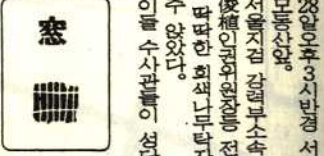 28일오후3시반경 서
모동산앞。
서울지검 강력부소속
俊植인권위원장등 전
딱딱한 회색나무탁자
수 앉았다。
이들 수사관들이 성당
窓